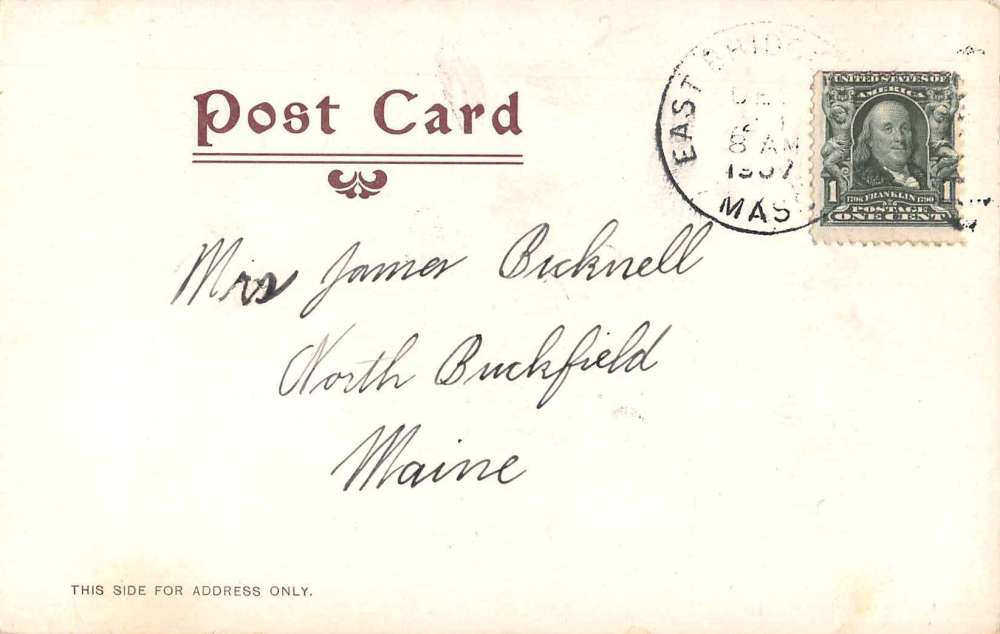 Post Card
EAST
8 AM
1907
MAS
UNITED STATES OF
AMERICA
1 1
1706 FRANKLIN 1790
POSTAGE
ONE CENT
Mrs James Bicknell
North Buckfield
Maine
THIS SIDE FOR ADDRESS ONLY.